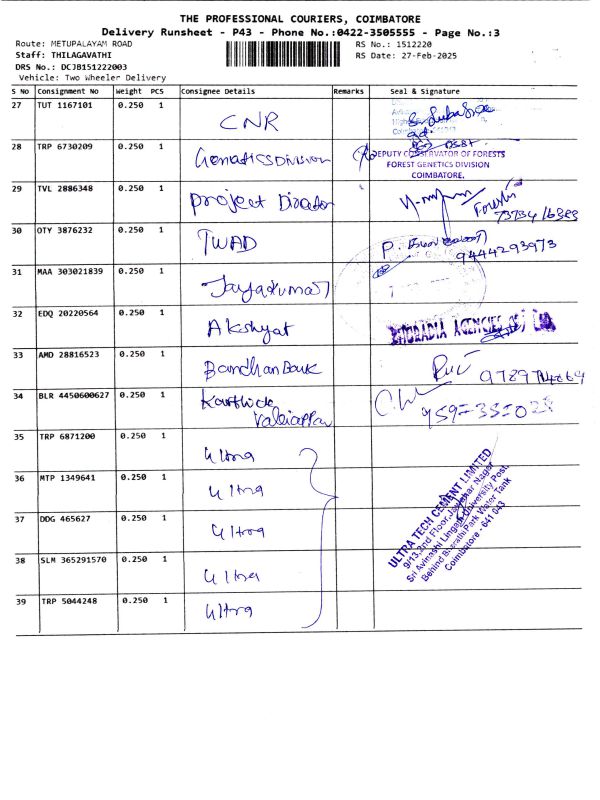 THE PROFESSIONAL COURIERS, COIMBATORE
Delivery Runsheet - P43 - Phone No.:0422-3505555 - Page No.:3
Route: METUPALAYAM ROAD
RS No.: 1512220
Staff: THILAGAVATHI
RS Date: 27-Feb-2025
DRS No.: DCJB151222003
Vehicle: Two Wheeler Delivery
S No Consignment No Weight PCS Consignee Details Remarks Seal & Signature
27 TUT 1167101 0.250 1 CNR
28 TRP 6730209 0.250 1 Genetics Division
DEPUTY CONSERVATOR OF FORESTS
FOREST GENETICS DIVISION
COIMBATORE.
29 TVL 2886348 0.250 1 Project Director
30 OTY 3876232 0.250 1 TWAD P.
9444293973
31 MAA 303021839 0.250 1 Jayakumar
32 EDQ 20220564 0.250 1 Akshyat AGENCIES
33 AMD 28816523 0.250 1 Bandhan Bank
34 BLR 4450600627 0.250 1 Karthick
Valiappan
35 TRP 6871200 0.250 1 Ultra
36 MTP 1349641 0.250 1 Ultra
37 DDG 465627 0.250 1 Ultra
38 SLM 365291570 0.250 1 Ultra
39 TRP 5044248 0.250 1 Ultra
ULTRA TECH CEMENT LIMITED
9/13,2nd Floor,Jawahar Nagar
Sri Avinashi Lingam University Post
Behind Bharathi Park Water Tank
Coimbatore - 641 043